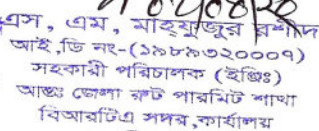 এস, এম, মাহফুজুর রশীদ
আই,ডি নং-(১৯৮৯৩২০০০৭)
সহকারী পরিচালক (ইঞ্জিঃ)
আন্তঃ জেলা রুট পারমিট শাখা
বিআরটিএ সদর,কার্যালয়